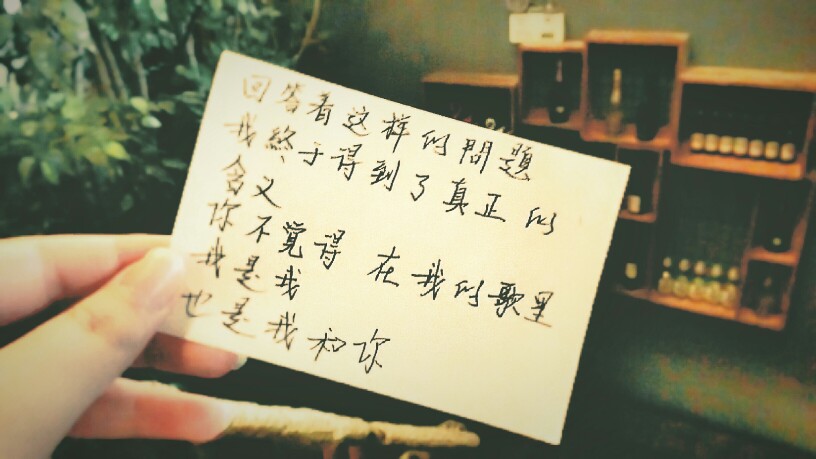 回答着这样的問題
我終于得到了真正的
含义
你不覺得 在我的歌里
我是我
也是我和你